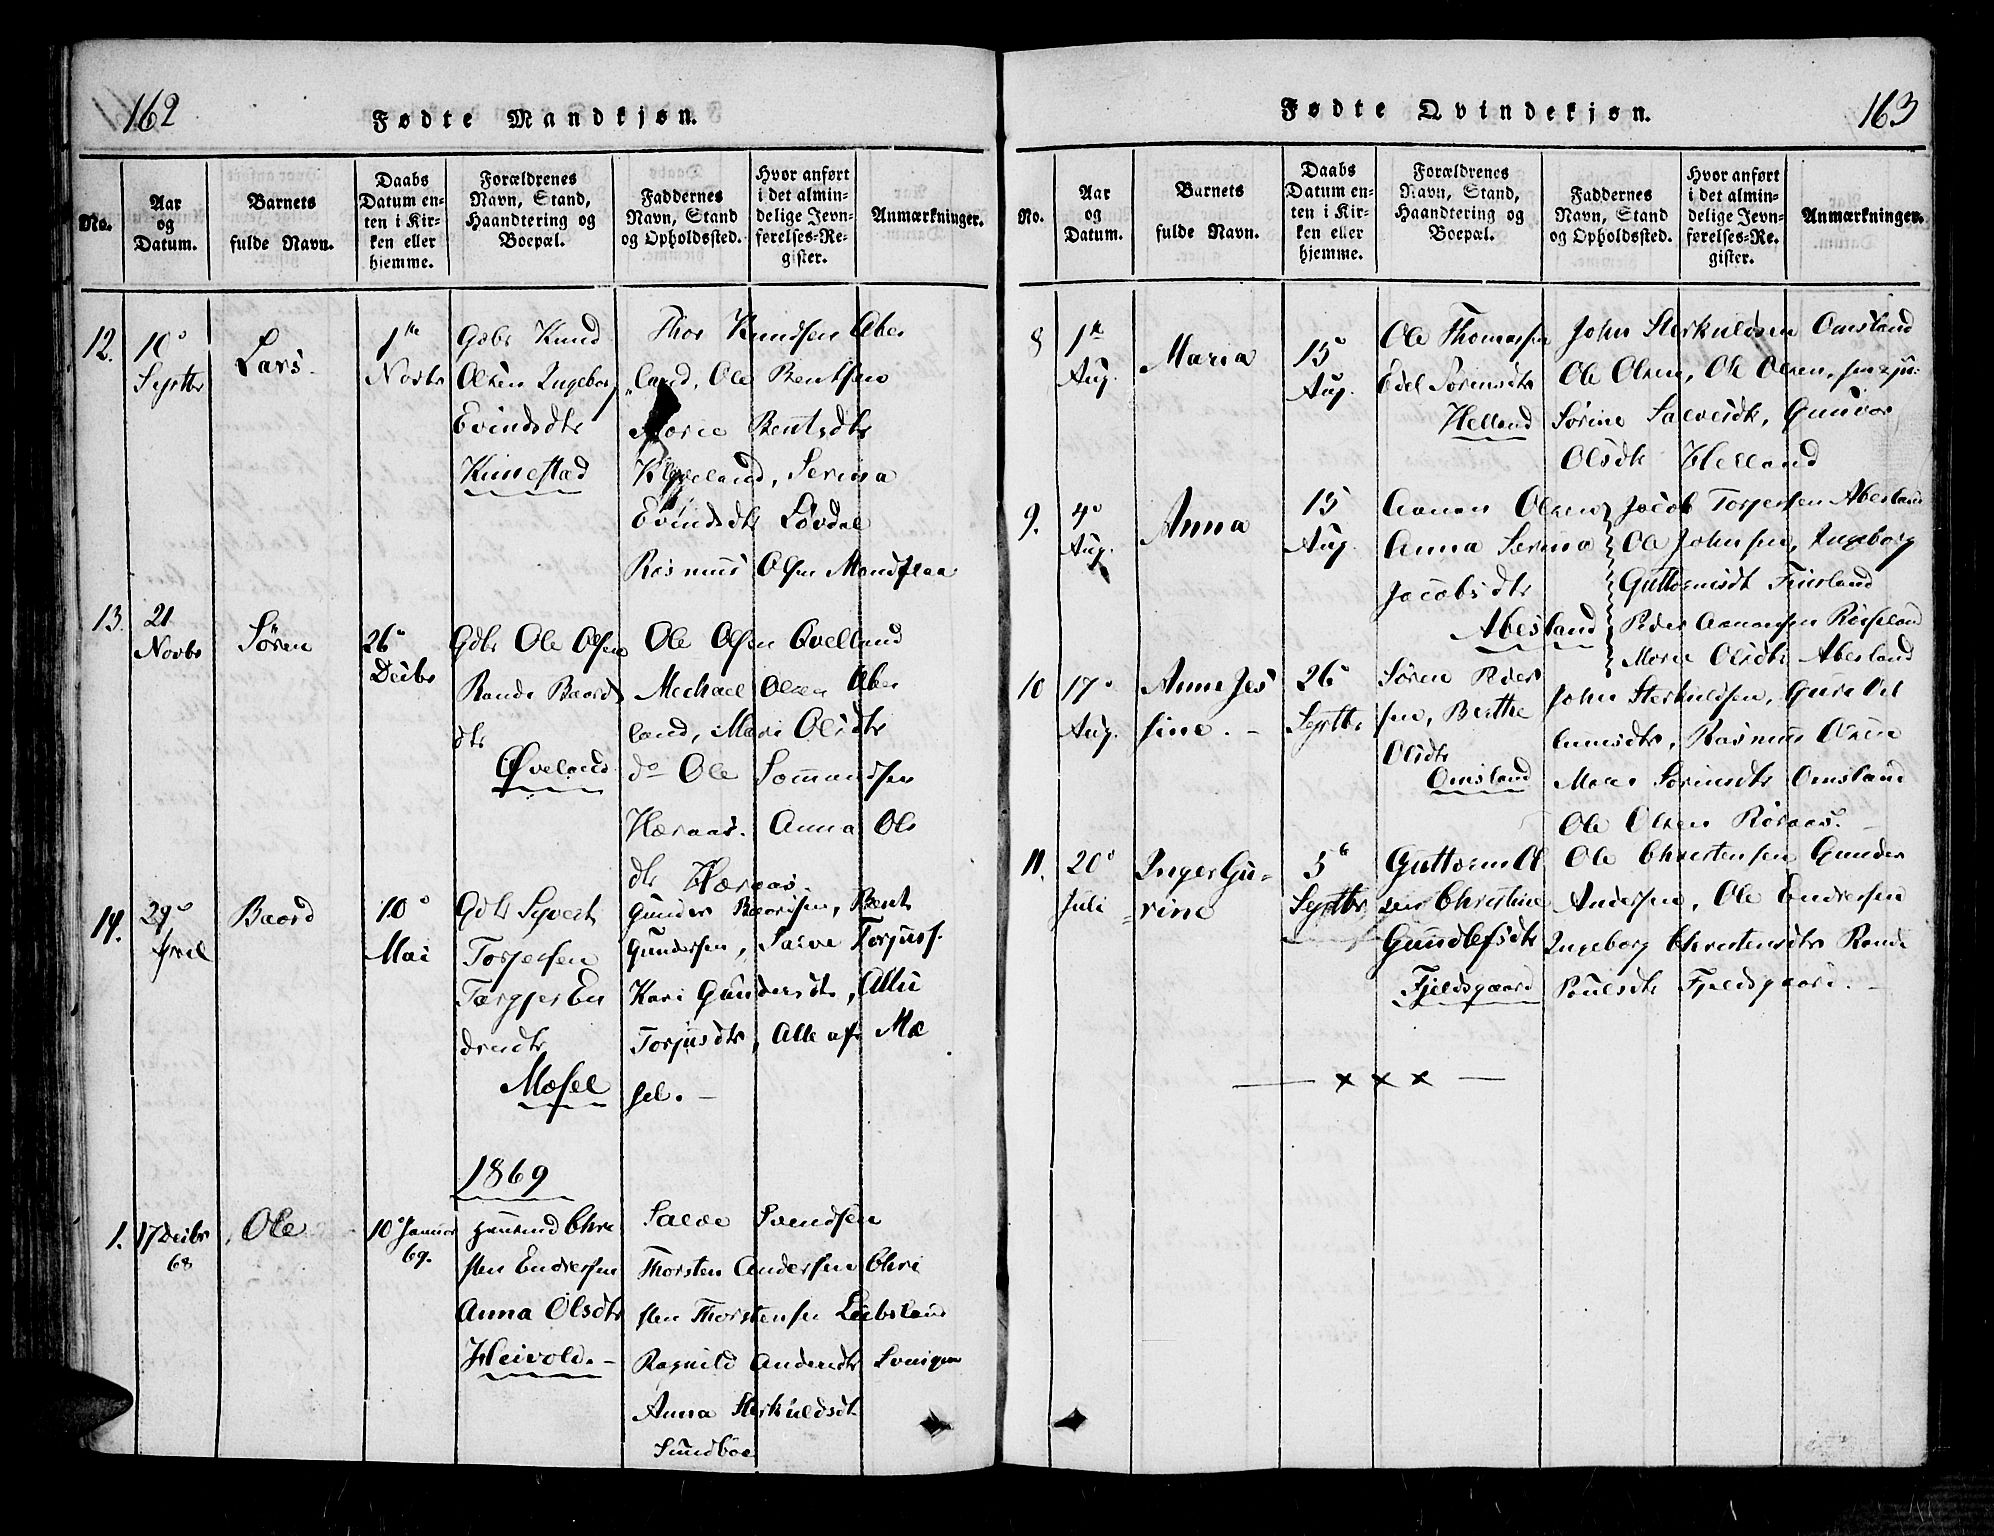 162
Fødte Mandkjøn.
No.
Aar
og
Datum.
Barnets
fulde Navn.
Daabs
Datum en-
ten i Kir-
ken eller
hjemme.
Forældrenes
Navn, Stand,
Haandtering og
Boepæl.
Faddernes
Navn, Stand
og Opholdssted.
Hvor anført
i det almin-
delige Jevn-
førelses-Re-
gister.
Anmærkninger.
12.
10de
Septbr
Lars.
1ste
Novbr
Gdbr Knud
Olsen Ingeborg
Evindsdtr
Kinestad
Thor Knudsen Abes
land, Ole Bentsen
Marie Bentsdtr
Kleveland, Serina
Evindsdtr Løvdal
Rasmus Olsen Mandflaa
13.
21
Novbr
Søren
26de
Decbr
Gdbr Ole Olsen
Rande Baards
dtr
Øveland
Ole Olsen Qvelland
Michael Olsen Abes
land, Mari Olsdtr
do Ole Sommundsen
Høraas. Anna Ols
dtr Høraas.
14.
29de
April
Baard
10de
Mai
Gdbr Syvert
Torjesen
Targjer En
dresdtr
Mæsel
Gunder Baardsen, Bent
Gundersen, Salve Torjuss.
Kari Gundersdtr, Alli
Torjusdtr, Alle af Mæ
sel. –
1869
1.
17 Decbr
68
Ole
10de Januar
69.
Huusmd Chri
sten Endresen
Anna Olsdtr
Heivold. –
Salve Svendsen
Thorsten Andersen Chri
sten Thorstensen Lubsland
Ragnild Andersdtr Svaigen
Anna Sterkuldsdtr
Sundbøe
163
Fødte Qvindekjøn.
No.
Aar
og
Datum.
Barnets
fulde Navn.
Daabs
Datum en-
ten i Kir-
ken eller
hjemme.
Forældrenes
Navn, Stand,
Haandtering og
Boepæl.
Faddernes
Navn, Stand
og Opholdssted.
Hvor anført
i det almin-
delige Jevn-
førelses-Re-
gister.
Anmærkninger.
8
1ste
Aug.
Maria
15de
Aug.
Ole Thomassen
Edel Sørensdtr
Helland
John Sterkuldsen Omsland
Ole Olsen, Ole Olsen, sen & ju-
Sørine Salvesdtr, Gunvor
Olsdtr Helland
9.
4de
Aug.
Anna
15
Aug.
Aanon Olsen
Anna Serina
Jacobsdtr
Abesland
Jacob Torjersen Abesland
Ole Johnsen, Ingeborg
Guttormsdt Fuesland
Peder Aanonsen Røiseland
Marie Olsdtr Abesland
10
17de
Aug.
Anne Jes
sine. –
26de
Septbr
Søren Peder
sen, Berthe
Olsdtr
Omsland
John Sterkuldsen, Gure Vel
lumsdtr, Rasmus Olsen
Maren Sørensdtr Omsland
Ole Olsen Røraas. –
11.
20de
Juli
Inger Gu-
rine
5te
Septbr
Guttorm Ol
sen Christine
Gundlefsdtr
Fjeldsgaard
Ole Christensen Gunder
Andersen, Ole Endresen
Ingeborg Christensdtr Rande
Poulsdtr Fjeldsgaard. –
— x x x —